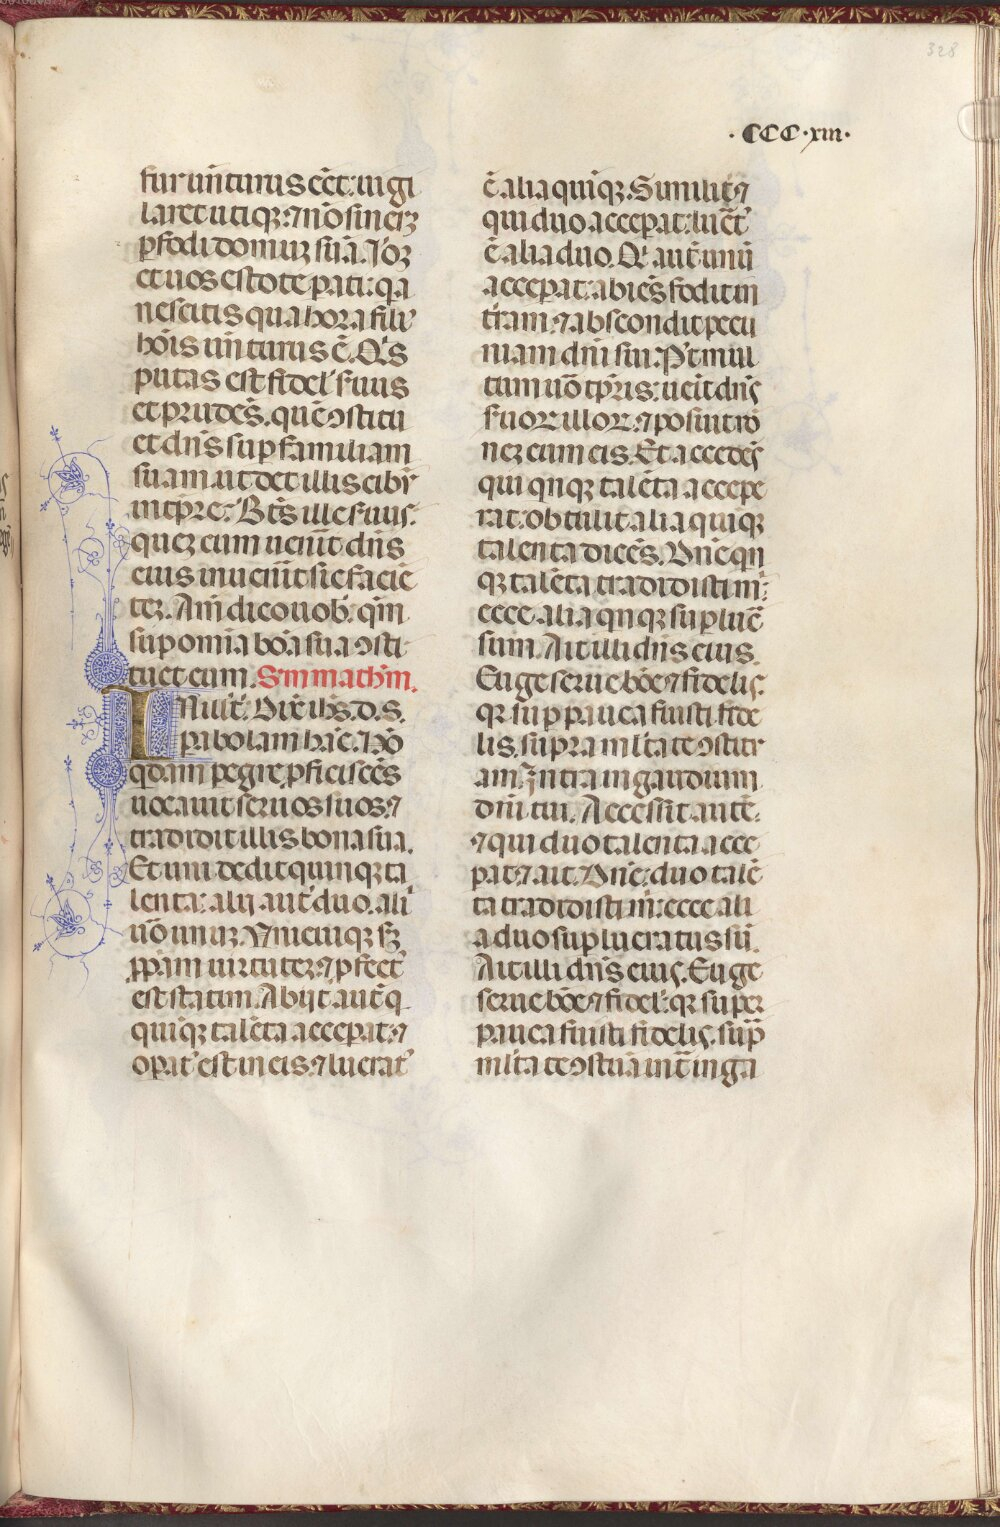 328
·CCC·xiii·
fur uẽturus eẽt: uigi
laret utiq̃ ⁊ nõ sineꝫ
ꝑfodi domuꝫ suã. Iõꝫ
et uos estote pati: qa
nescitis qua hora fili'
hõis uẽturus ẽ. Q's
putas est fidel' s'uus
et prudẽs. quẽ ꝯstitu
et dñs sup familiam
suam. ut det illis cibũ
in tp̃re. Bt̃s ille s'uus.
queꝫ cum uenit dñs
eius inuenit sic faciẽ
teꝫ. Am̃ dico uob'. qm̃
sup omĩa bõa sua ꝯsti
tuet eum. Sm̃ mathm̃.
IN illo t̃. Dix̃ ihs. d. s.
pabolam hãc. Hõ
qdam pegre ꝓficiscẽs
uocauit seruos suos. ⁊
tradidit illis bona sua.
Et uni dedit quinqꝫ ta
lenta: alij aut' duo. ali
uõ unuꝫ. Vnicuiqꝫ sꝫ
ꝓpam uirtuteꝫ. ⁊ ꝓfect'
est statim. Abijt autẽ q
quiqꝫ talẽta accepat. ⁊
opat' est in eis. ⁊ lucrat'
ẽ alia quiqꝫ. Similit̃ ⁊
qui duo accepat: lucẽt'
ẽ alia duo. Q' aut̃ unũ
accepat: abiẽs fodit in
t'ram. ⁊ abscondit pecu
niam dñi sui. P't mul
tum uõ tp̃ris: uenit dñs
s'uoꝝ illoꝝ. ⁊ posuit rõ
neꝫ cum eis. Et accedẽs
qui qnqꝫ talẽta accepe
rat: obtulit alia quiqꝫ
talenta dicẽs. Dñe qn
qꝫ talẽta tradidisti m̃:
ecce alia qnqꝫ sup lucẽ
sum. Ait illi dñs eius.
Euge serue bõe ⁊ fidelis.
qꝛ sup pauca fuisti fide
lis. supra ml̃ta te ꝯstitu
am. Intra in gaudium
dñi tui. Accessit autẽ.
⁊ qui duo talenta acce
pat ⁊ ait. Dñe: duo talẽ
ta tradidisti m̃: ecce ali
a duo sup lucratus sũ.
Ait illi dñs eius. Euge
serue bõe ⁊ fidel'. qꝛ super
pauca fuisti fidelis. sup
ml̃ta te ꝯstituã int̃ in ga